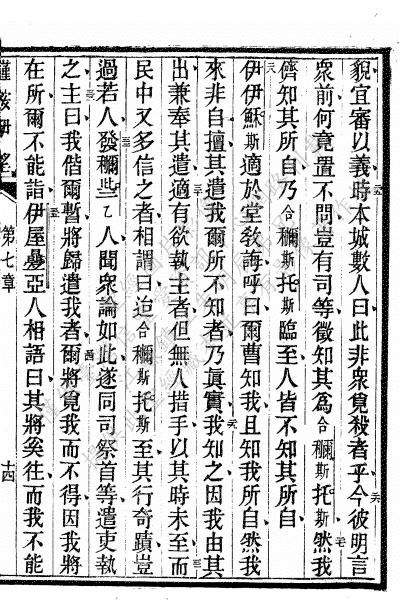 貌宜審以義時本城數人曰此非衆覓殺者乎今彼明言
衆前何竟置不問豈有司等徵知其爲合穪斯托斯然我
儕知其所自乃合穪斯托斯臨至人皆不知其所自
伊伊穌斯適於堂敎誨呼曰爾曹知我且知我所自然我
來非自擅其遣我爾所不知者乃眞實我知之因我由其
出兼奉其遣適有欲執主者但無人措手以其時未至而
民中又多信之者相謂曰迨合穪斯托斯至其行奇蹟豈
過若人發穪些乙人聞衆論如此遂同司祭首等遣吏執
之主曰我偕爾暫將歸遣我者爾將覓我而不得因我將
在所爾不能詣伊屋疊亞人相語曰其將奚往而我不能
第七章
十四